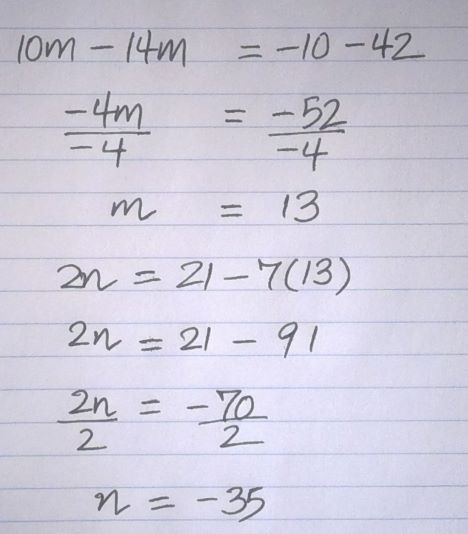 10m - 14m = -10 - 42
-4m/-4 = -52/-4
m = 13
2n = 21 - 7(13)
2n = 21 - 91
2n/2 = -70/2
n = -35